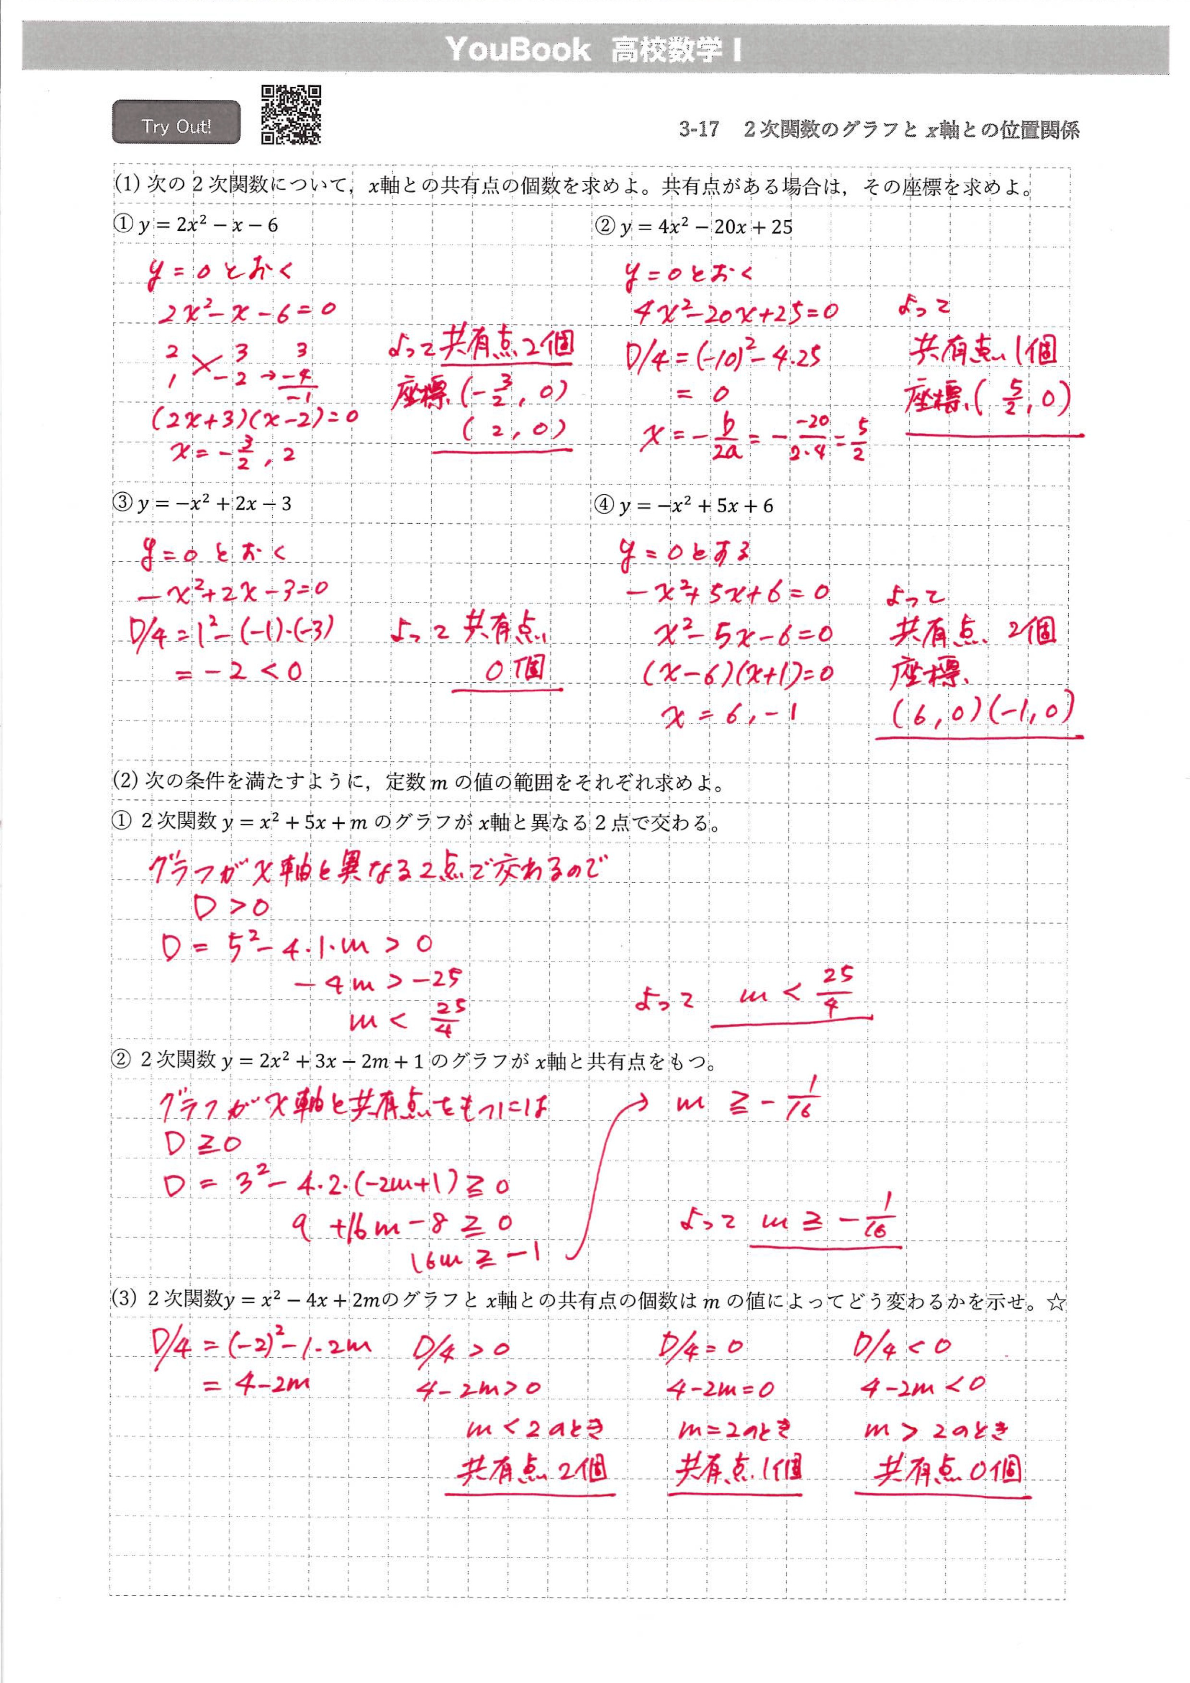 YouBook 高校数学 I
Try Out!
3-17 2次関数のグラフとx軸との位置関係
(1) 次の2次関数について，x軸との共有点の個数を求めよ。共有点がある場合は，その座標を求めよ。
① y = 2x² − x − 6
y = 0 とおく
2x² − x − 6 = 0
2 3 3
1 −2 → −4
−1
(2x+3)(x−2) = 0
x = −3/2 , 2
よって 共有点 2個
座標 (−3/2, 0)
(2, 0)
② y = 4x² − 20x + 25
y = 0 とおく
4x² − 20x + 25 = 0
D/4 = (−10)² − 4·25
= 0
x = −b/2a = −−20/2·4 = 5/2
よって
共有点 1個
座標 (5/2, 0)
③ y = −x² + 2x − 3
y = 0 とおく
−x² + 2x − 3 = 0
D/4 = 1² − (−1)·(−3)
= −2 < 0
よって 共有点
0個
④ y = −x² + 5x + 6
y = 0 とする
−x² + 5x + 6 = 0
x² − 5x − 6 = 0
(x−6)(x+1) = 0
x = 6, −1
よって
共有点 2個
座標
(6, 0) (−1, 0)
(2) 次の条件を満たすように，定数 m の値の範囲をそれぞれ求めよ。
① 2次関数 y = x² + 5x + m のグラフが x軸と異なる2点で交わる。
グラフがx軸と異なる2点で交わるので
D > 0
D = 5² − 4·1·m > 0
−4m > −25
m < 25/4
よって m < 25/4
② 2次関数 y = 2x² + 3x − 2m + 1 のグラフが x軸と共有点をもつ。
グラフがx軸と共有点をもつには
D ≧ 0
D = 3² − 4·2·(−2m+1) ≧ 0
9 + 16m − 8 ≧ 0
16m ≧ −1
→ m ≧ −1/16
よって m ≧ −1/16
(3) 2次関数y = x² − 4x + 2mのグラフと x軸との共有点の個数は m の値によってどう変わるかを示せ。☆
D/4 = (−2)² − 1·2m
= 4 − 2m
D/4 > 0
4 − 2m > 0
m < 2 のとき
共有点 2個
D/4 = 0
4 − 2m = 0
m = 2 のとき
共有点 1個
D/4 < 0
4 − 2m < 0
m > 2 のとき
共有点 0個